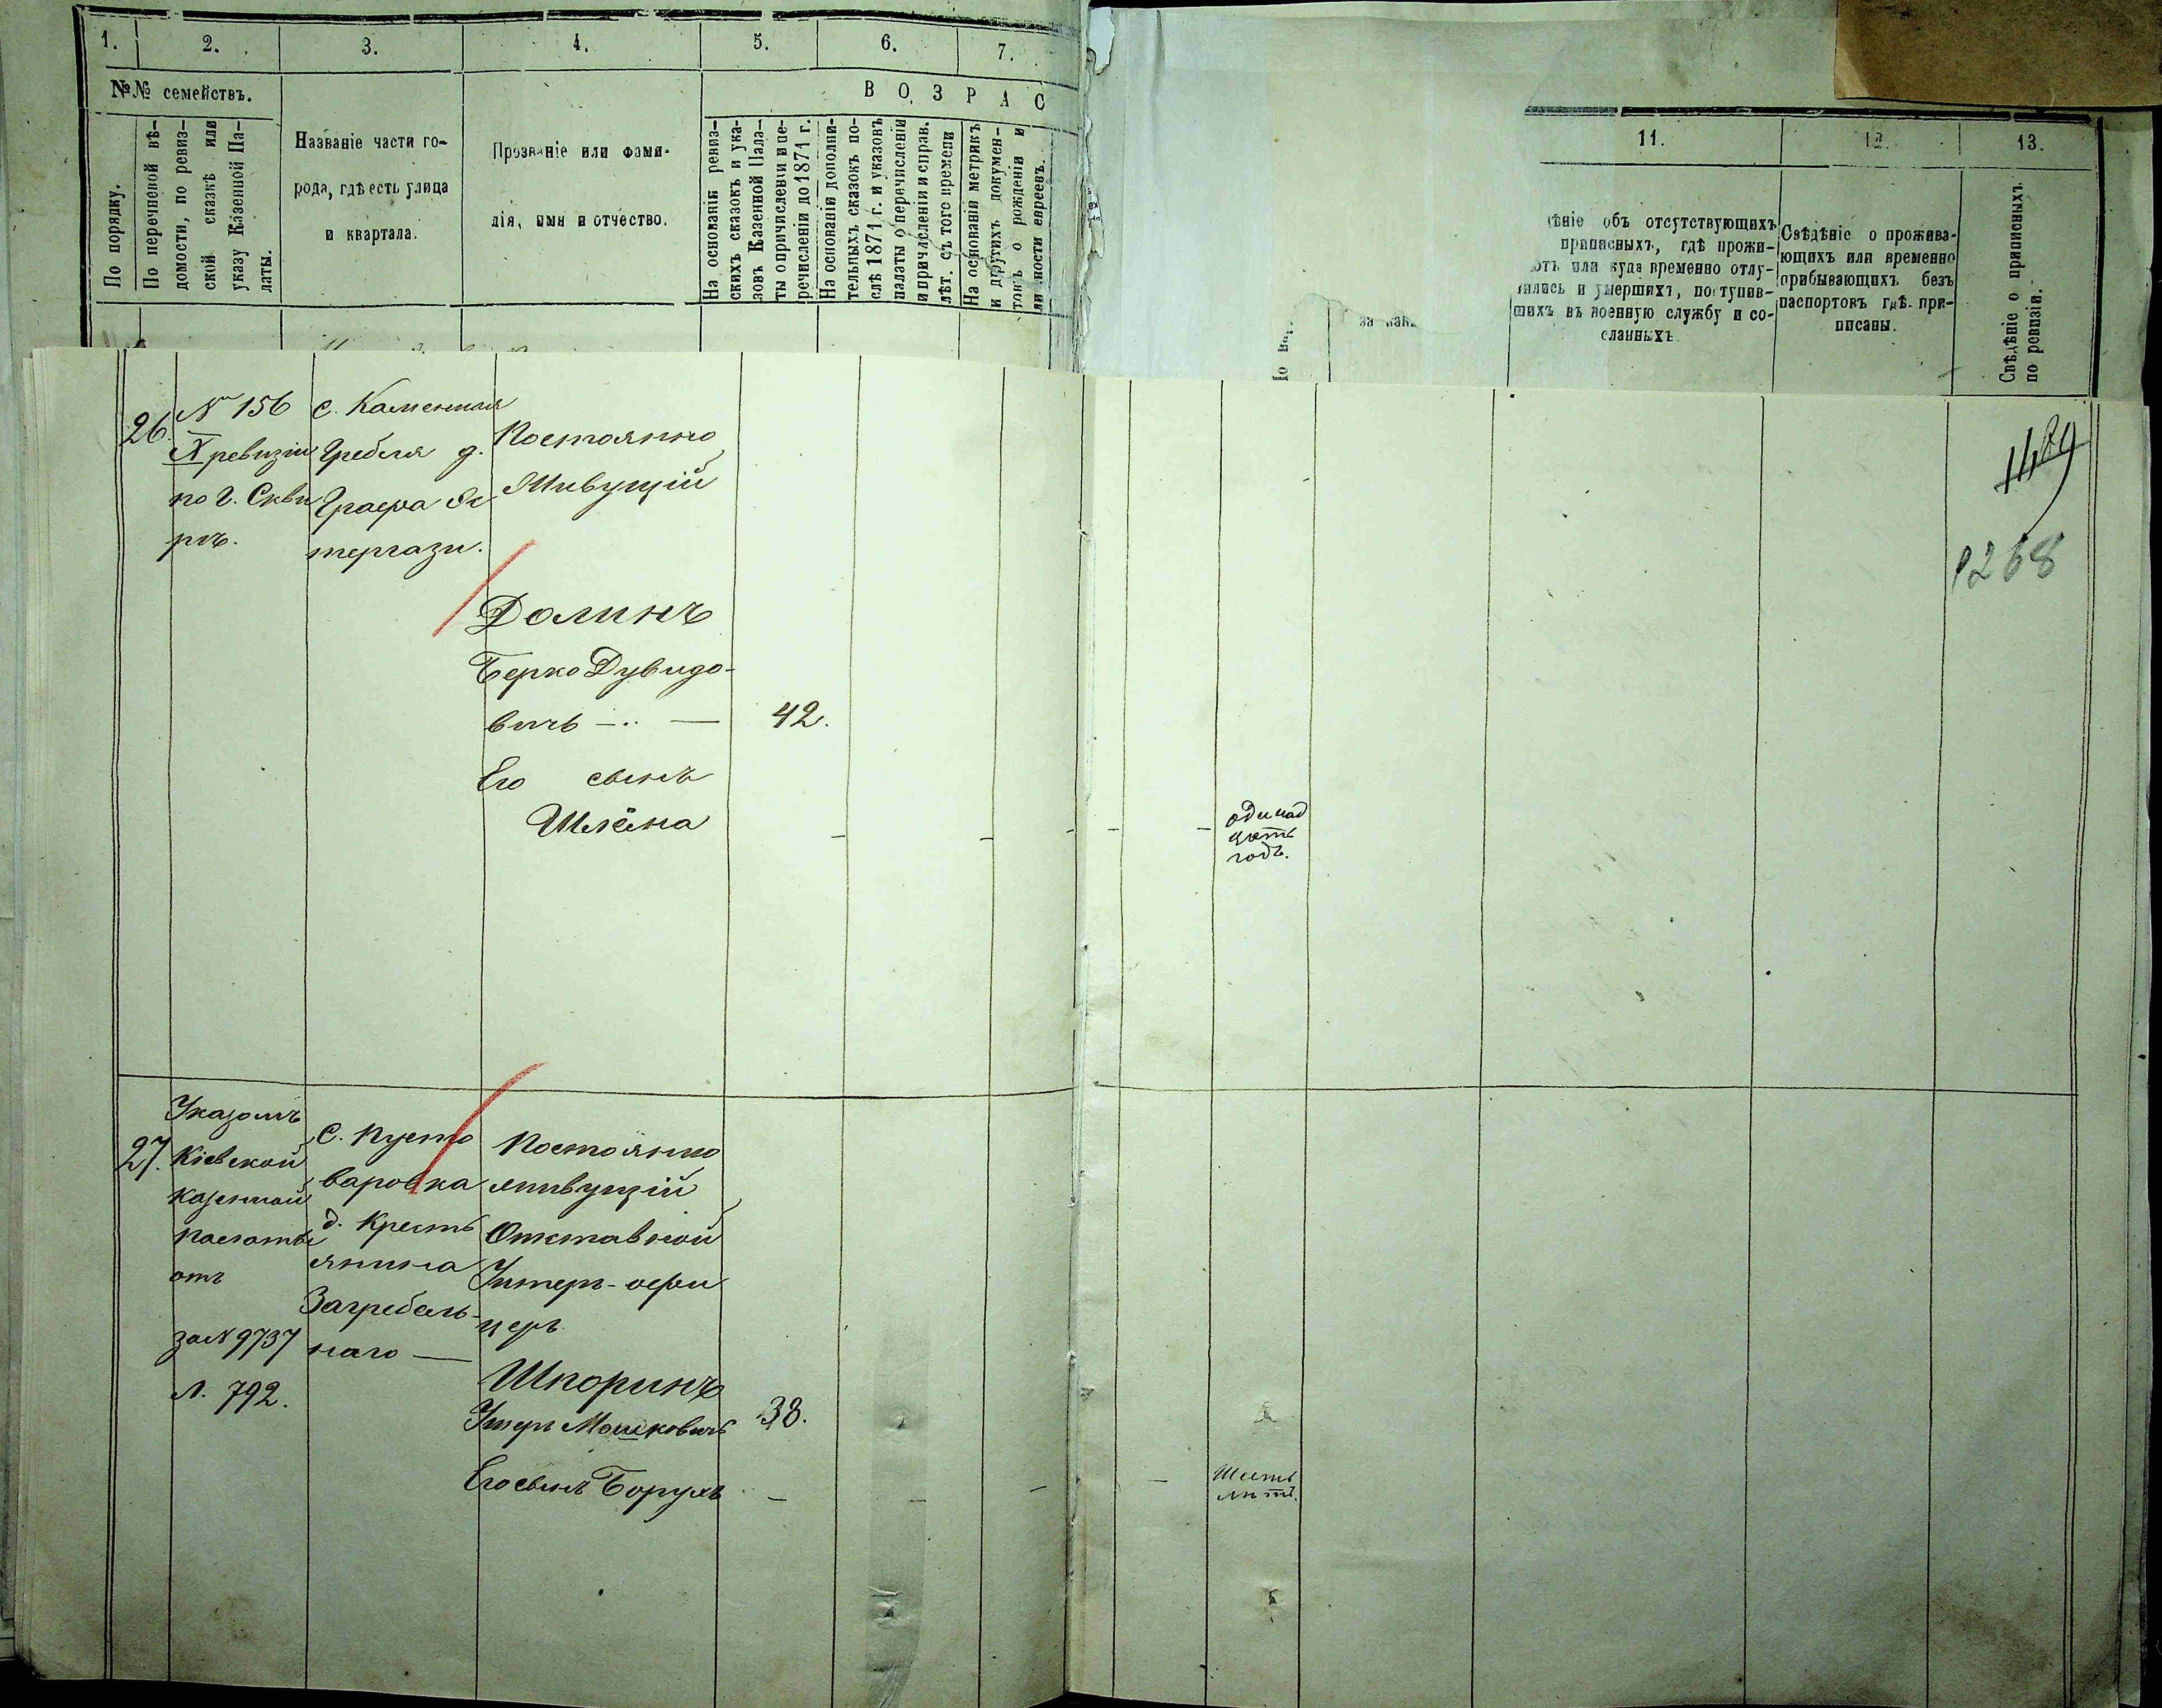 1.
2.
3.
4.
5.
6.
7.
№№ семействъ.
ВОЗРАС
По порядку.
По перечневой вѣ-
домости, по ревиз-
ской сказкѣ или
указу Казенной Па-
латы.
Названіе части го-
рода, гдѣ есть улица
и квартала.
Прозваніе или фами-
лія, имя и отчество.
На основаніи ревиз-
скихъ сказокъ и ука-
зовъ Казенной Пала-
ты о причисленіи и пе-
речисленіи до 1871 г.
На основаніи дополни-
тельныхъ сказокъ по-
слѣ 1871 г. и указовъ
палаты о перечисленіи
и причисленіи и справ.
лѣт. съ того времени
На основаніи метрикъ
и другихъ докумен-
товъ о рожденіи и
личности евреевъ.
11.
12.
13.
объ отсутствующихъ
приписныхъ, гдѣ прожи-
или куда временно отлу-
и умершихъ, поступив-
шихъ въ военную службу и со-
сланныхъ
Свѣдѣніе о прожива-
ющихъ или временно
прибывающихъ безъ
паспортовъ гдѣ при-
писаны.
Свѣдѣніе о приписныхъ
по ревизіи.
26.
№ 156
X ревизіи
по г.Скви
рѣ.
с. Каменная
Гребля д.
Графа Эс
тергази.
Постоянно
Живущій
Долинъ
Берко Дувидо-
вичъ
42.
Его сынъ
Шлёма
одинад
цать
годъ.
1268
27.
Указомъ
Кіевской
Казенной
Палаты
отъ
за № 9737
Л. 792.
С. Пусто
варовка
д. Кресть
янина
Загребель-
наго
Постоянно
живущій
Отставной
Унтеръ-офи
церъ
Шпоринъ
Мошковичъ
38.
Его сынъ Борухъ
Шесть
лѣтъ.